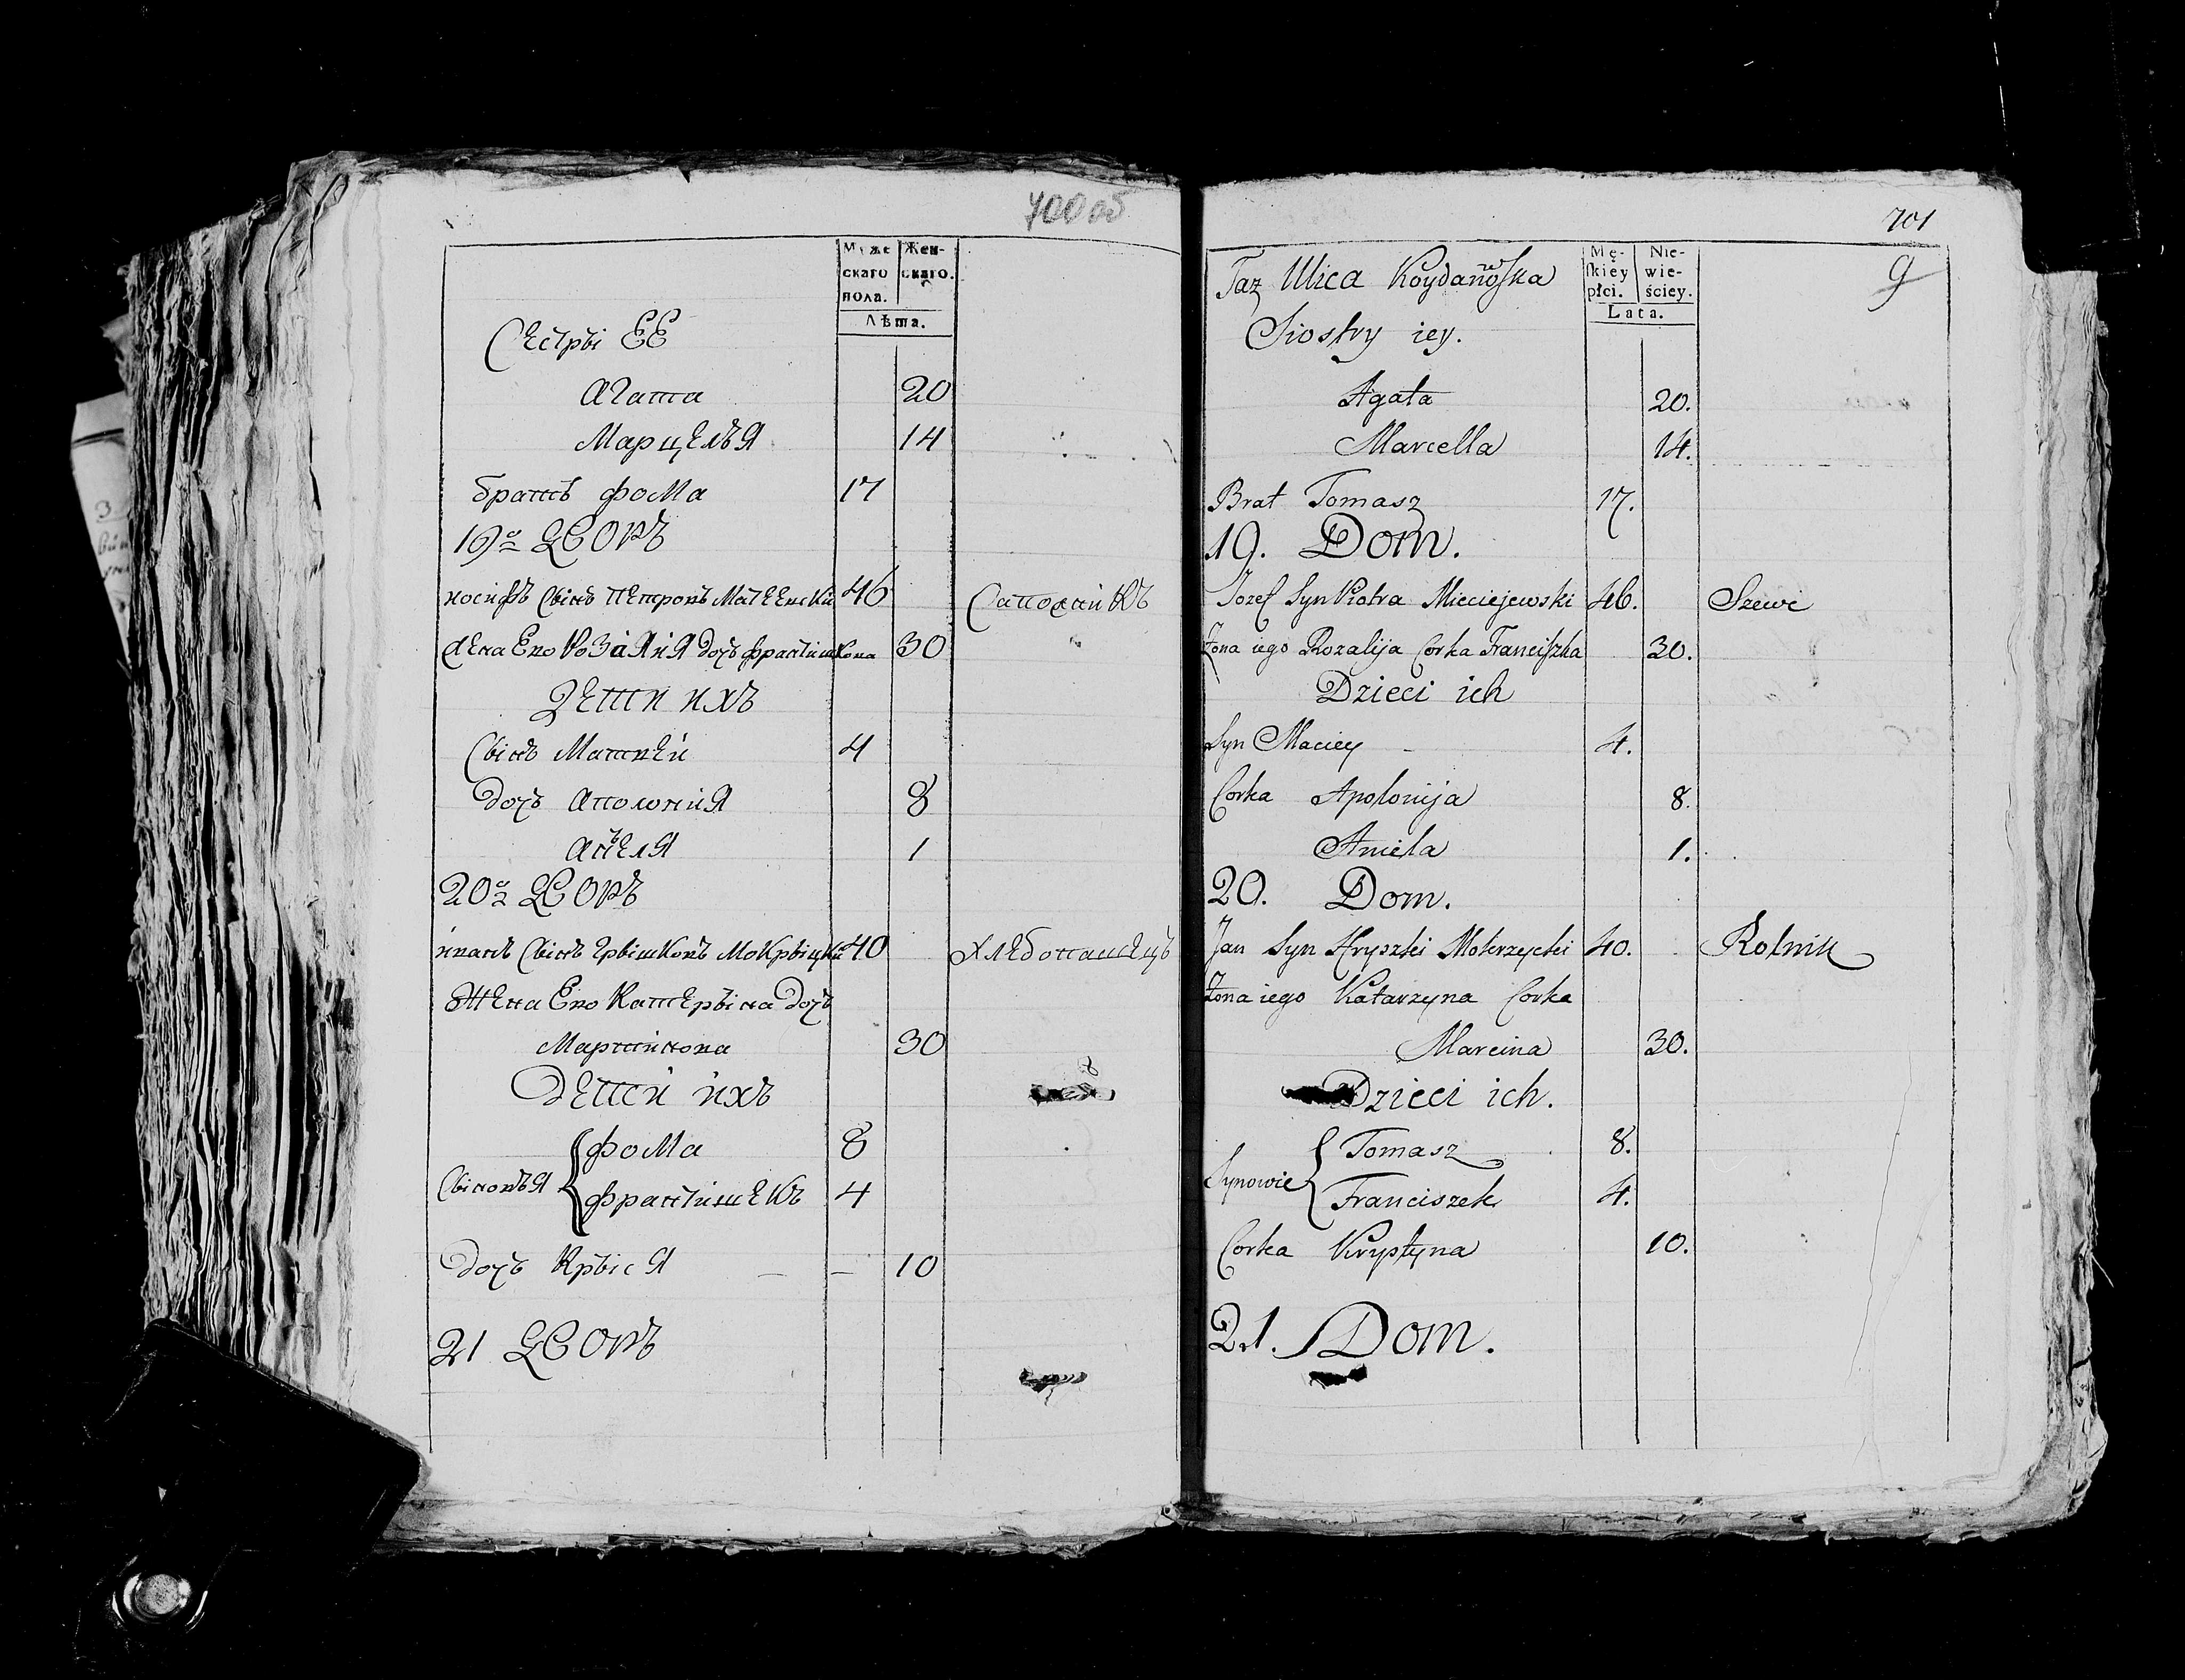 700 об
Муже
скаго
пола.
Жен-
скаго.
Лѣта.
Сестры ЕЕ
Агата 20
Марцелья 14
братъ фома 17
19º Дворъ
иосифъ сынъ петровъ Мацеевски 46 Сапожникъ
жена Его Розалия дочь францишкова 30
Дети ихъ
Сынъ Матвей 4
дочь аполония 8
анъеля 1
20º Дворъ
иванъ сынъ грышковъ Мокрыцки 40 хлебопашецъ
Жена Его Катерына дочь
Мартинова 30
дети ихъ
Сыновья { фома 8
францишекъ 4
дочь Крыся — — 10
21 Дворъ
701
9
Mę-
skiey
płci.
Nie-
wie-
ściey.
Lata.
Taż Ulica Koydanowska
Siostry iey.
Agata 20.
Marcella 14.
Brat Tomasz 17.
19. Dom.
Jozef Syn Piotra Mieciejewski 46. Szewc
Żona iego Rozalija Corka Franciszka 30.
Dzieci ich
Syn Maciey - 4.
Corka Apolonija 8.
Aniela 1.
20. Dom.
Jan Syn Hryszki Mokrzycki 40. Rolnik
Żona iego Katarzyna Corka
Marcina 30.
Dzieci ich.
Synowie { Tomasz 8.
Franciszek 4.
Corka Krystyna 10.
21. Dom.